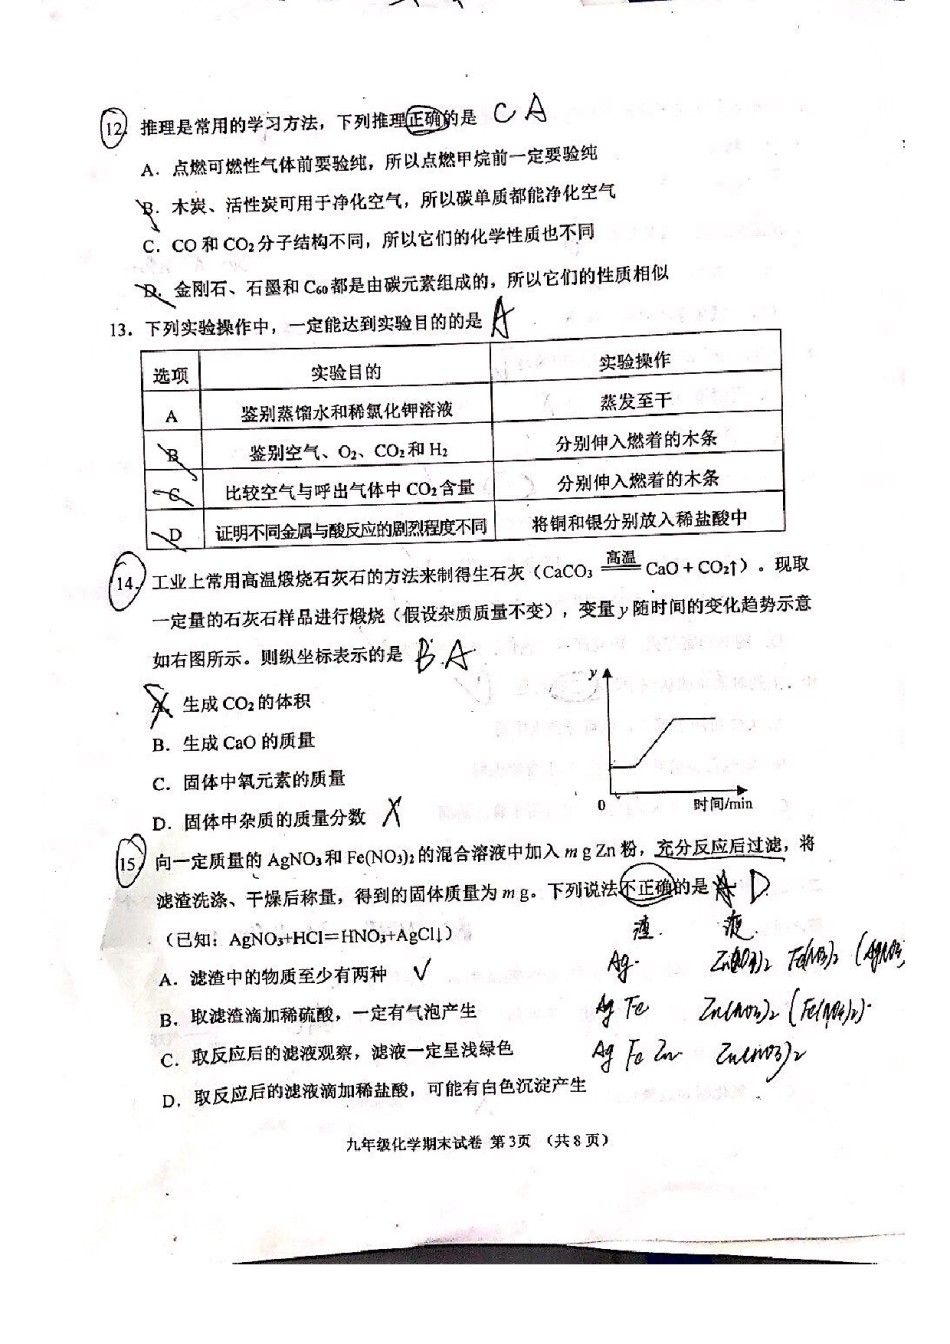 12. 推理是常用的学习方法，下列推理正确的是 C A
A．点燃可燃性气体前要验纯，所以点燃甲烷前一定要验纯
B．木炭、活性炭可用于净化空气，所以碳单质都能净化空气
C．CO 和 CO₂ 分子结构不同，所以它们的化学性质也不同
D．金刚石、石墨和 C₆₀ 都是由碳元素组成的，所以它们的性质相似
13．下列实验操作中，一定能达到实验目的的是 A
选项 实验目的 实验操作
A 鉴别蒸馏水和稀氯化钾溶液 蒸发至干
B 鉴别空气、O₂、CO₂和 H₂ 分别伸入燃着的木条
C 比较空气与呼出气体中 CO₂含量 分别伸入燃着的木条
D 证明不同金属与酸反应的剧烈程度不同 将铜和银分别放入稀盐酸中
14．工业上常用高温煅烧石灰石的方法来制得生石灰（CaCO₃ 高温 CaO + CO₂↑）。现取
一定量的石灰石样品进行煅烧（假设杂质质量不变），变量 y 随时间的变化趋势示意
如右图所示。则纵坐标表示的是 B. A
y
A．生成 CO₂ 的体积
B．生成 CaO 的质量
C．固体中氧元素的质量
0 时间/min
D．固体中杂质的质量分数 X
15．向一定质量的 AgNO₃和 Fe(NO₃)₂的混合溶液中加入 m g Zn 粉，充分反应后过滤，将
滤渣洗涤、干燥后称量，得到的固体质量为 m g。下列说法不正确的是 A D
（已知：AgNO₃+HCl=HNO₃+AgCl↓） 渣. 液.
A．滤渣中的物质至少有两种 √ Ag. Zn(NO₃)₂ Fe(NO₃)₂ (AgNO₃
B．取滤渣滴加稀硫酸，一定有气泡产生 Ag Fe Zn(NO₃)₂ (Fe(NO₃)₂)
C．取反应后的滤液观察，滤液一定呈浅绿色 Ag Fe Zn Zn(NO₃)₂
D．取反应后的滤液滴加稀盐酸，可能有白色沉淀产生
九年级化学期末试卷 第3页 （共8页）